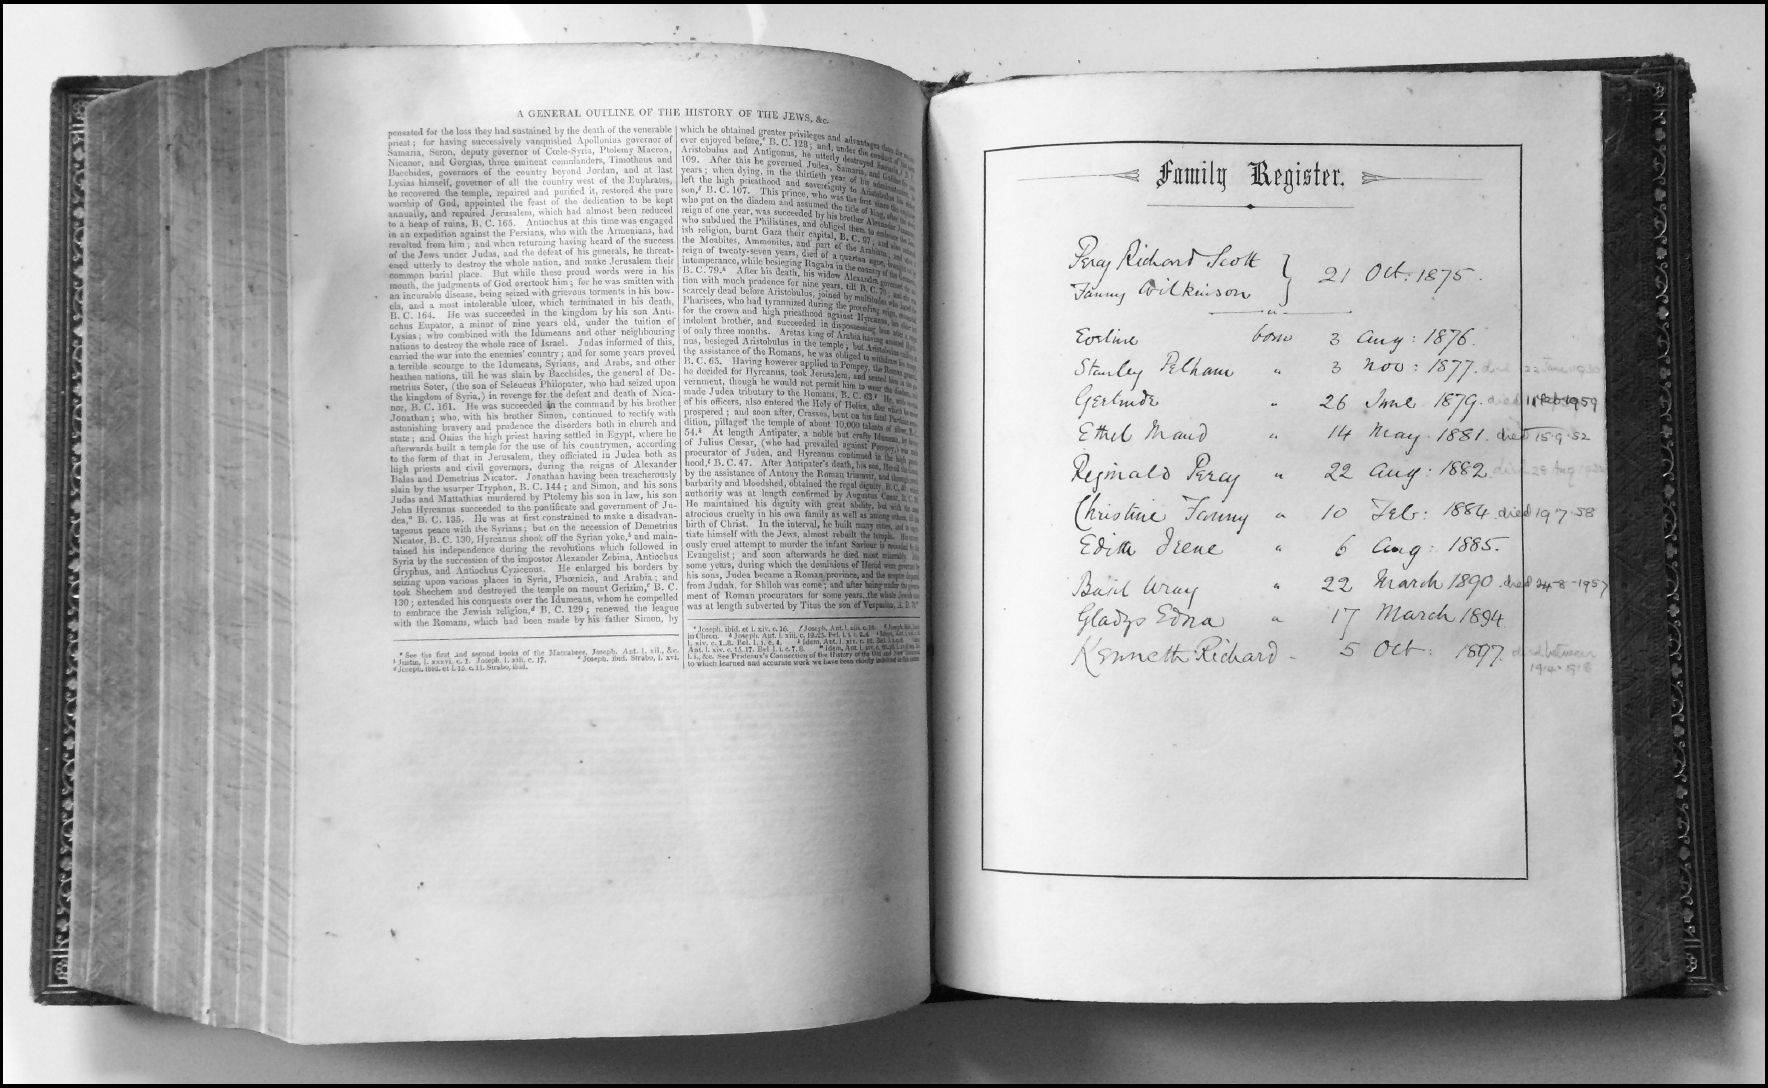 A GENERAL OUTLINE OF THE HISTORY OF THE JEWS, &c.
pensated for the loss they had sustained by the death of the venerable
priest; for having successively vanquished Apollonius governor of
Samaria, Seron, deputy governor of Cœle-Syria, Ptolemy Macron,
Nicanor, and Gorgias, three eminent commanders, Timotheus and
Bacchides, governors of the country beyond Jordan, and at last
Lysias himself, governor of all the country west of the Euphrates,
he recovered the temple, repaired and purified it, restored the pure
worship of God, appointed the feast of the dedication to be kept
annually, and repaired Jerusalem, which had almost been reduced
to a heap of ruins, B. C. 165. Antiochus at this time was engaged
in an expedition against the Persians, who with the Armenians, had
revolted from him; and when returning having heard of the success
of the Jews under Judas, and the defeat of his generals, he threat-
ened utterly to destroy the whole nation, and make Jerusalem their
common burial place. But while these proud words were in his
mouth, the judgments of God overtook him; for he was smitten with
an incurable disease, being seized with grievous torments in his bow-
els, and a most intolerable ulcer, which terminated in his death,
B. C. 164. He was succeeded in the kingdom by his son Anti-
ochus Eupator, a minor of nine years old, under the tuition of
Lysias; who combined with the Idumeans and other neighbouring
nations to destroy the whole race of Israel. Judas informed of this,
carried the war into the enemies' country; and for some years proved
a terrible scourge to the Idumeans, Syrians, and Arabs, and other
heathen nations, till he was slain by Bacchides, the general of De-
metrius Soter, (the son of Seleucus Philopater, who had seized upon
the kingdom of Syria,) in revenge for the defeat and death of Nica-
nor, B. C. 161. He was succeeded in the command by his brother
Jonathan; who, with his brother Simon, continued to rectify with
astonishing bravery and prudence the disorders both in church and
state; and Onias the high priest having settled in Egypt, where he
afterwards built a temple for the use of his countrymen, according
to the form of that in Jerusalem, they officiated in Judea both as
high priests and civil governors, during the reigns of Alexander
Balas and Demetrius Nicator. Jonathan having been treacherously
slain by the usurper Tryphon, B. C. 144; and Simon, and his sons
Judas and Mattathias murdered by Ptolemy his son in law, his son
John Hyrcanus succeeded to the pontificate and government of Ju-
dea, B. C. 135. He was at first constrained to make a disadvan-
tageous peace with the Syrians; but on the accession of Demetrius
Nicator, B. C. 130, Hyrcanus shook off the Syrian yoke, and main-
tained his independence during the revolutions which followed in
Syria by the succession of the impostor Alexander Zebina, Antiochus
Gryphus, and Antiochus Cyzicenus. He enlarged his borders by
seizing upon various places in Syria, Phœnicia, and Arabia; and
took Shechem and destroyed the temple on mount Gerizim, B. C.
130; extended his conquests over the Idumeans, whom he compelled
to embrace the Jewish religion, B. C. 129; renewed the league
with the Romans, which had been made by his father Simon, by
See the first and second books of the Maccabees, Joseph. Ant. l. xii., &c.
Justin, l. xxxvi. c. 1. Joseph. l. xiii. c. 17. Joseph. ibid. Strabo, l. xvi.
Joseph. ibid. et l. 15. c. 11. Strabo, ibid.
which he obtained greater privileges and advantages than
ever enjoyed before, B. C. 128; and, under the conduct of
Aristobulus and Antigonus, he utterly destroyed Samaria,
109. After this he governed Judea, Samaria, and Galilee
years; when dying, in the thirtieth year of his administration,
left the high priesthood and sovereignty to Aristobulus his
son, B. C. 107. This prince, who was the first since the
who put on the diadem and assumed the title of king, after
reign of one year, was succeeded by his brother Alexander
who subdued the Philistines, and obliged them to embrace the
ish religion, burnt Gaza their capital, B. C. 97; and also
the Moabites, Ammonites, and part of the Arabians; and
reign of twenty-seven years, died of a quartan ague, brought on by
intemperance, while besieging Ragaba in the country of the
B. C. 79. After his death, his widow Alexandra governed the
tion with much prudence for nine years, till B. C. 70; and
scarcely dead before Aristobulus, joined by multitudes who
Pharisees, who had tyrannized during the preceding reign,
for the crown and high priesthood against Hyrcanus, his elder
indolent brother, and succeeded in dispossessing him after a
of only three months. Aretas king of Arabia having
nus, besieged Aristobulus in the temple; but Aristobulus
the assistance of the Romans, he was obliged to withdraw his
B. C. 65. Having however applied to Pompey, the Roman
he decided for Hyrcanus, took Jerusalem, and
vernment, though he would not permit him to wear the diadem,
made Judea tributary to the Romans, B. C. 63. He, with
of his officers, also entered the Holy of Holies, after which he never
prospered; and soon after, Crassus, bent on his fatal Parthian
dition, pillaged the temple of about 10,000 talents of silver, B. C.
54. At length Antipater, a noble but crafty Idumean, by favour
of Julius Cæsar, (who had prevailed against Pompey,) was made
procurator of Judea, and Hyrcanus continued in the high priest-
hood, B. C. 47. After Antipater's death, his son, Herod the Great,
by the assistance of Antony the Roman triumvir, and through much
barbarity and bloodshed, obtained the regal dignity,
authority was at length confirmed by Augustus Cæsar, B. C.
He maintained his dignity with great ability, but with the
atrocious cruelty in his own family as well as among others, till the
birth of Christ. In the interval, he built many cities, and to ingra-
tiate himself with the Jews, almost rebuilt the temple. His
ously cruel attempt to murder the infant Saviour is recorded by the
Evangelist; and soon afterwards he died most miserably.
some years, during which the dominions of Herod were governed by
his sons, Judea became a Roman province, and the sceptre departed
from Judah, for Shiloh was come; and after being under the govern-
ment of Roman procurators for some years, the whole Jewish
was at length subverted by Titus the son of Vespasian, A. D.
Family Register.
Percy Richard Scott
Fanny Wilkinson } 21 Oct: 1875.
Eveline born 3 Aug: 1876.
Stanley Pelham " 3 Nov: 1877. died
Gertrude " 26 June 1879. died 1959
Ethel Maud " 14 May. 1881. died 15.9.52
Reginald Percy " 22 Aug: 1882 died 28 Aug
Christine Fanny " 10 Feb: 1884. died 19 7 58
Edith Irene " 6 Aug: 1885.
Basil Wray " 22 March 1890. died 24-8-1957
Gladys Edna " 17 March 1894
Kenneth Richard - 5 Oct: 1897. died between
1914-1918